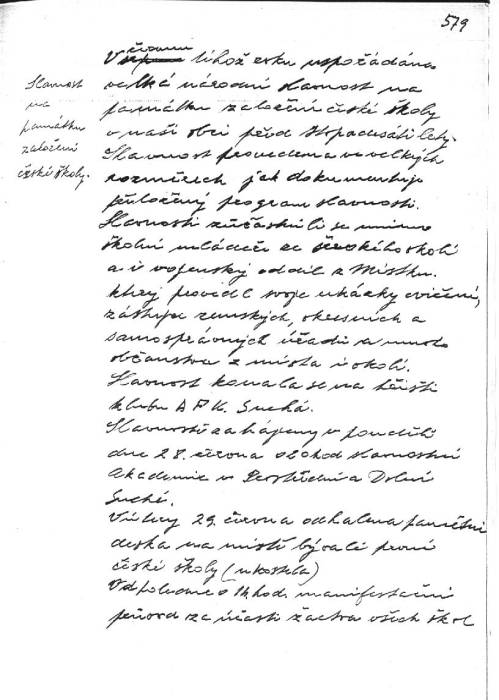 579
Slavnost
na
památku
založení
české školy.
V červnu tihož roku uspořádána
velká národní slavnost na
památku založení české školy
v naší obci před stopadesáti lety.
Slavnost provedena ve velkých
rozměrech jak dokumentuje
přiložený program slavnosti.
Slavnosti zúčastnili se mimo
školní mládeže ze širokého okolí
a i vojenský oddíl z Místku.
který provedl svoje ukázky cvičení,
zástupci zemských, okresních a
samosprávných úřadů a mnoho
občanstva z místa i okolí.
Slavnost konala se na hřišti
klubu A F K. Suchá.
Slavnosti zahájeny v pondělí
dne 28. června slavnostní
Akademie v Prostřední a Dolní
Suché.
V úterý 29. června odhalena pamětní
deska na místě bývalé první
české školy (u kostela)
Odpoledne o 14 hod. manifestační
průvod za účasti žactva všech škol